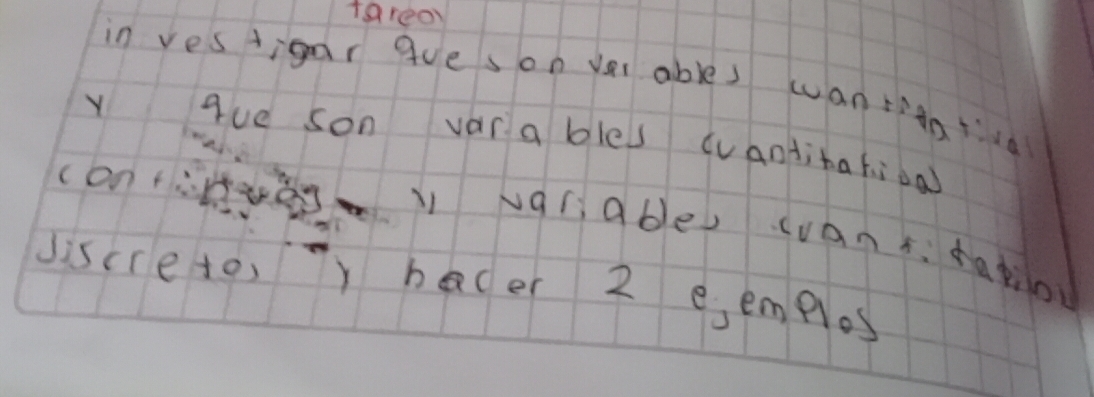 tarea
investigar que son variables cuantitativas
y que son variables cuantitativas
continuas y variables cuantitativas
discretas y hacer 2 ejemplos